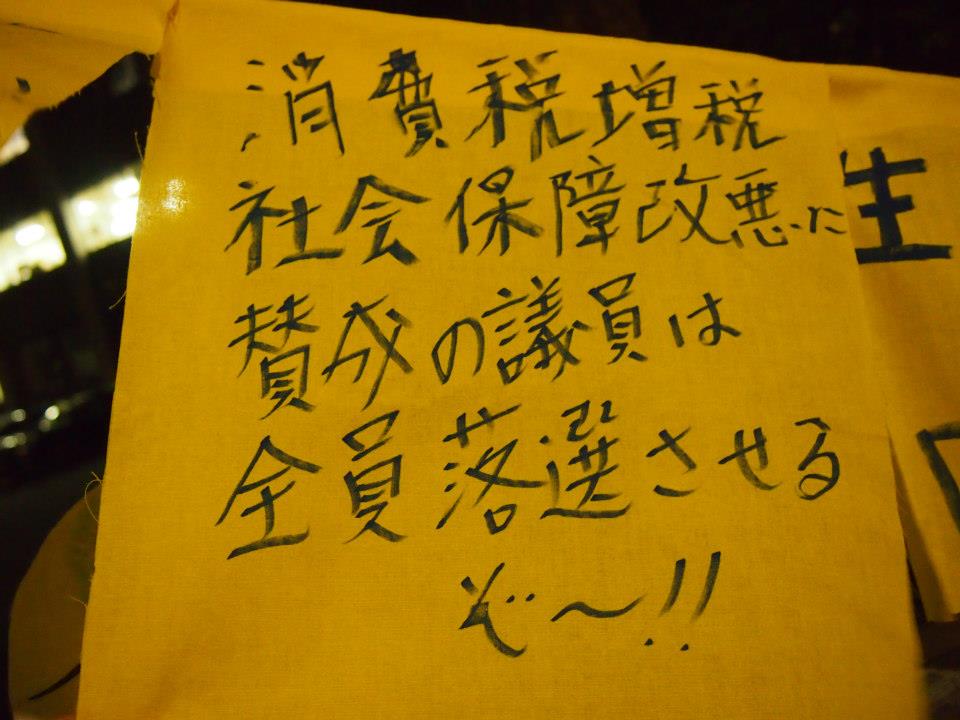 消費税増税
社会保障改悪に
賛成の議員は
全員落選させる
ぞ〜!!
生